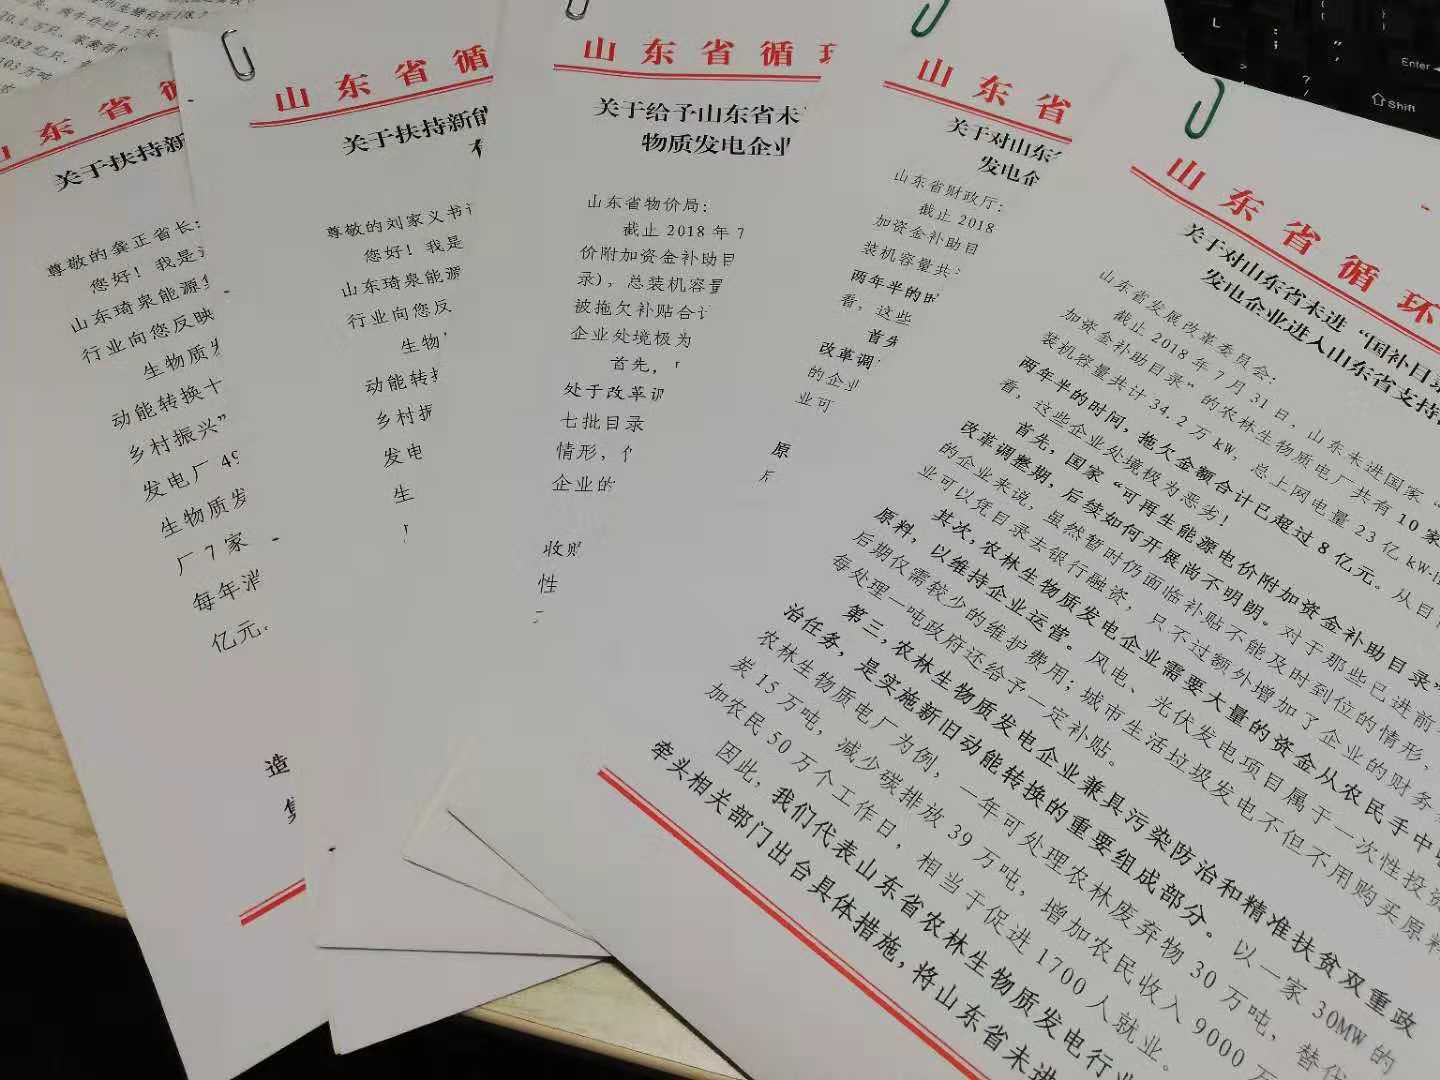 山东省循
关于扶持新
尊敬的龚正省长:
您好!我是
山东琦泉能源
行业向您反映
生物质发
动能转换十
乡村振兴”
发电厂 49
生物质发
厂 7 家
每年消
亿元。
造
山东省循
关于扶持新能
尊敬的刘家义书记
您好!我是
山东琦泉能源
行业向您反
生物
动能转换
乡村振
发电
生
山东省循环
关于给予山东省未
物质发电企业
山东省物价局:
截止 2018 年 7
价附加资金补助目
录),总装机容量
被拖欠补贴合计
企业处境极为
首先,
处于改革调
七批目录
情形,
企业的
收购
性
山东省
关于对山东省
发电企
山东省财政厅:
截止 2018
加资金补助目
装机容量共计
两年半的时
看,这些
首先
改革调
的企业
业可
原
后
山东省循环
关于对山东省未进“国补目录
发电企业进入山东省支持
山东省发展改革委员会:
截止 2018 年 7 月 31 日,山东未进国家“
加资金补助目录”的农林生物质电厂共有 10 家
装机容量共计 34.2 万 kW,总上网电量 23 亿 kW·h
两年半的时间,拖欠金额合计已超过 8 亿元。从目前
看,这些企业处境极为恶劣!
首先,国家“可再生能源电价附加资金补助目录”
改革调整期,后续如何开展尚不明朗。对于那些已进前
的企业来说,虽然暂时仍面临补贴不能及时到位的情形,
业可以凭目录去银行融资,只不过额外增加了企业的财务
其次,农林生物质发电企业需要大量的资金从农民手中
原料,以维持企业运营。风电、光伏发电项目属于一次性投资
后期仅需较少的维护费用;城市生活垃圾发电不但不用购买原料
每处理一吨政府还给予一定补贴。
第三,农林生物质发电企业兼具污染防治和精准扶贫双重政
治任务,是实施新旧动能转换的重要组成部分。以一家 30MW 的
农林生物质电厂为例,一年可处理农林废弃物 30 万吨,替代
炭 15 万吨,减少碳排放 39 万吨,增加农民收入 9000 万
加农民 50 万个工作日,相当于促进 1700 人就业。
因此,我们代表山东省农林生物质发电行业
牵头相关部门出台具体措施,将山东省未进
L
Enter
Shift